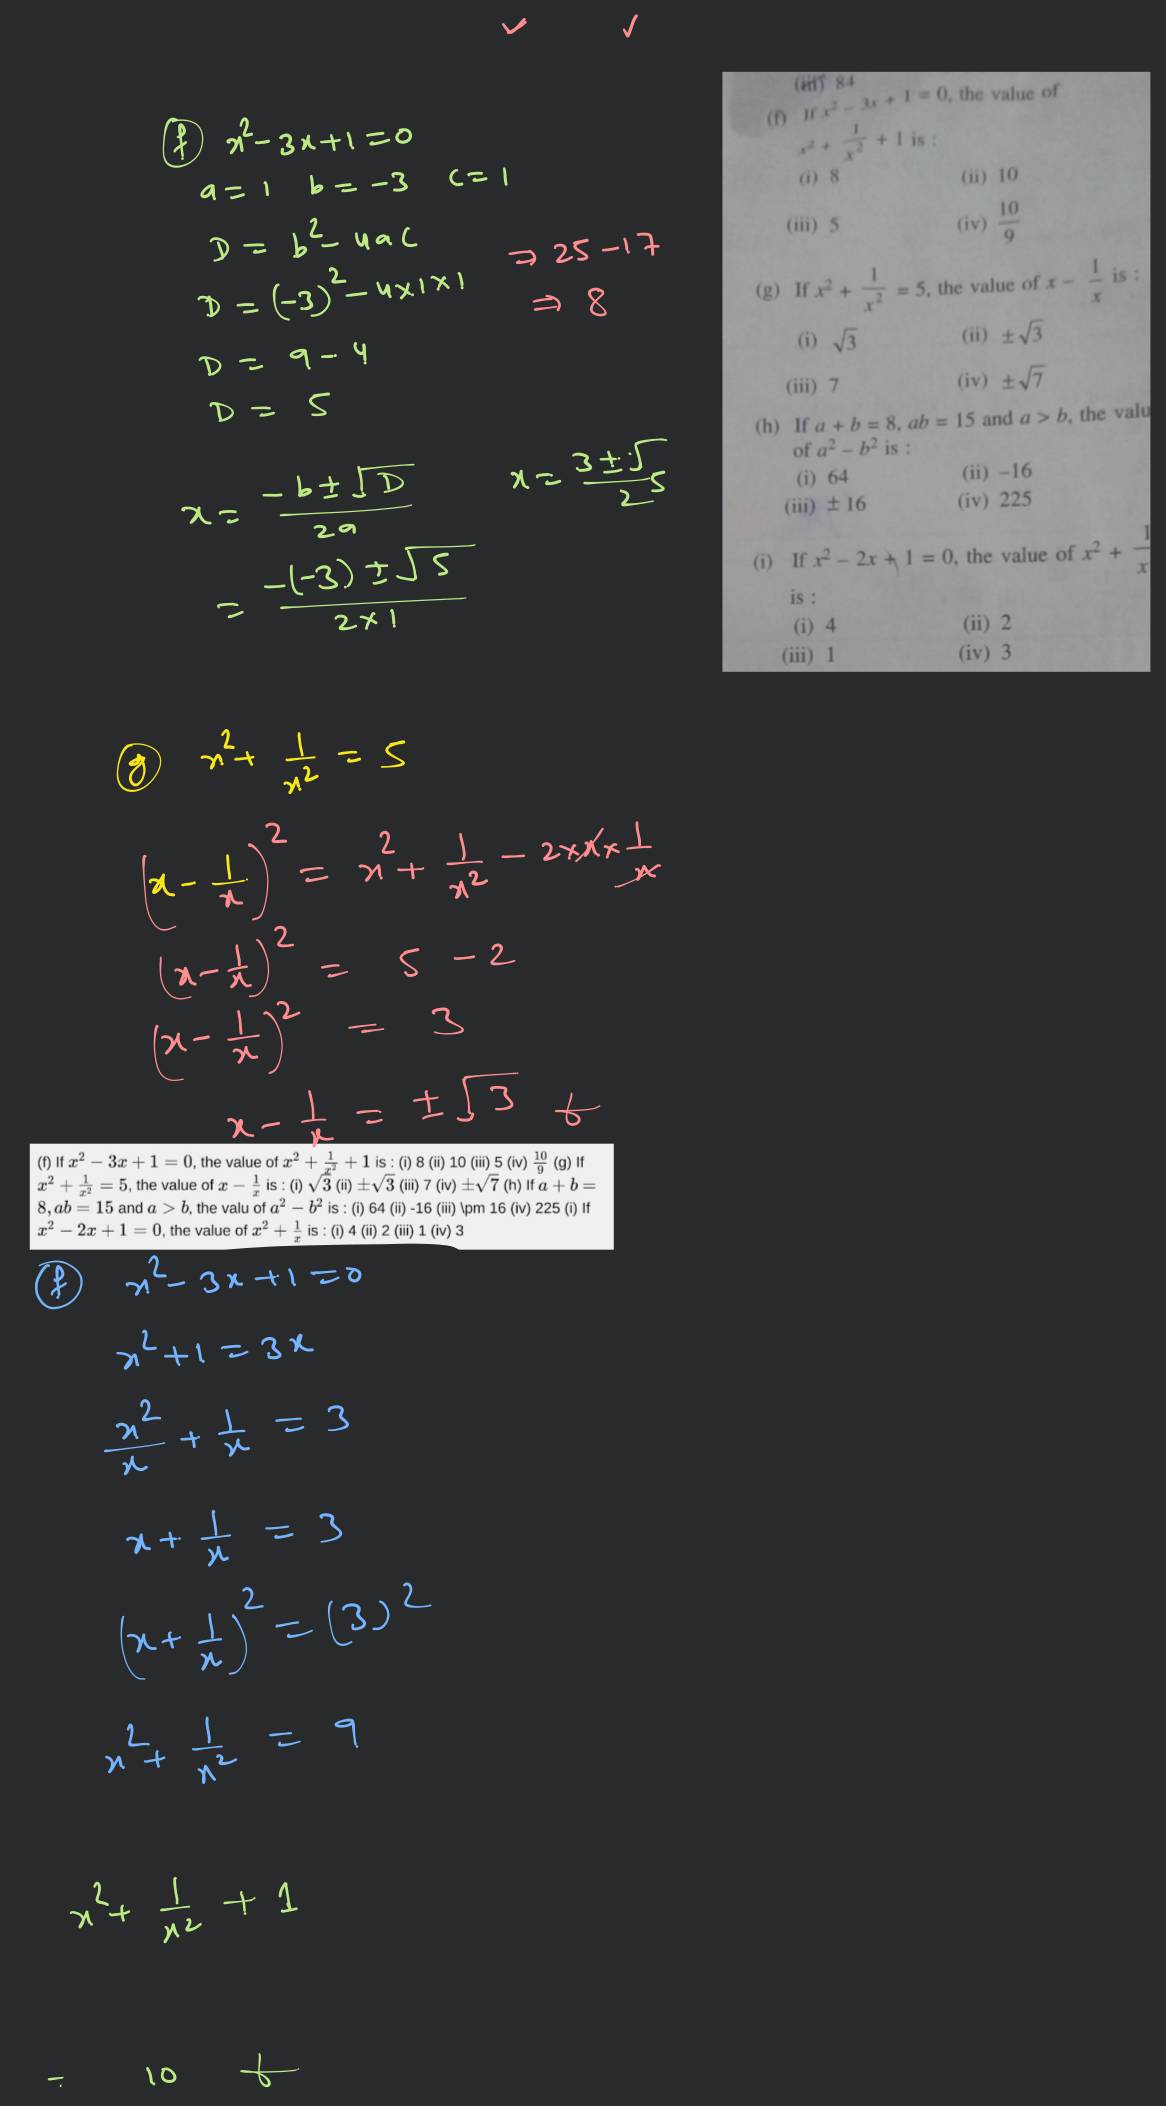 ⓕ x² - 3x + 1 = 0
a = 1 b = -3 c = 1
D = b² - 4ac
D = (-3)² - 4×1×1
D = 9 - 4
D = 5
⇒ 25 - 17
⇒ 8
x = (-b ± √D)/2a
= (-(-3) ± √5)/(2×1)
x = (3 ± √5)/2
(iii) 84
(f) If x² - 3x + 1 = 0, the value of
x² + 1/x² + 1 is :
(i) 8 (ii) 10
(iii) 5 (iv) 10/9
(g) If x² + 1/x² = 5, the value of x - 1/x is :
(i) √3 (ii) ±√3
(iii) 7 (iv) ±√7
(h) If a + b = 8, ab = 15 and a > b, the valu
of a² - b² is :
(i) 64 (ii) -16
(iii) ± 16 (iv) 225
(i) If x² - 2x + 1 = 0, the value of x² + 1/x
is :
(i) 4 (ii) 2
(iii) 1 (iv) 3
ⓖ x² + 1/x² = 5
(x - 1/x)² = x² + 1/x² - 2×x×1/x
(x - 1/x)² = 5 - 2
(x - 1/x)² = 3
x - 1/x = ±√3
(f) If x² − 3x + 1 = 0, the value of x² + 1/x² + 1 is : (i) 8 (ii) 10 (iii) 5 (iv) 10/9 (g) If
x² + 1/x² = 5, the value of x − 1/x is : (i) √3 (ii) ±√3 (iii) 7 (iv) ±√7 (h) If a + b =
8, ab = 15 and a > b, the valu of a² − b² is : (i) 64 (ii) -16 (iii) \pm 16 (iv) 225 (i) If
x² − 2x + 1 = 0, the value of x² + 1/x is : (i) 4 (ii) 2 (iii) 1 (iv) 3
ⓕ x² - 3x + 1 = 0
x² + 1 = 3x
x²/x + 1/x = 3
x + 1/x = 3
(x + 1/x)² = (3)²
x² + 1/x² = 9
x² + 1/x² + 1
= 10